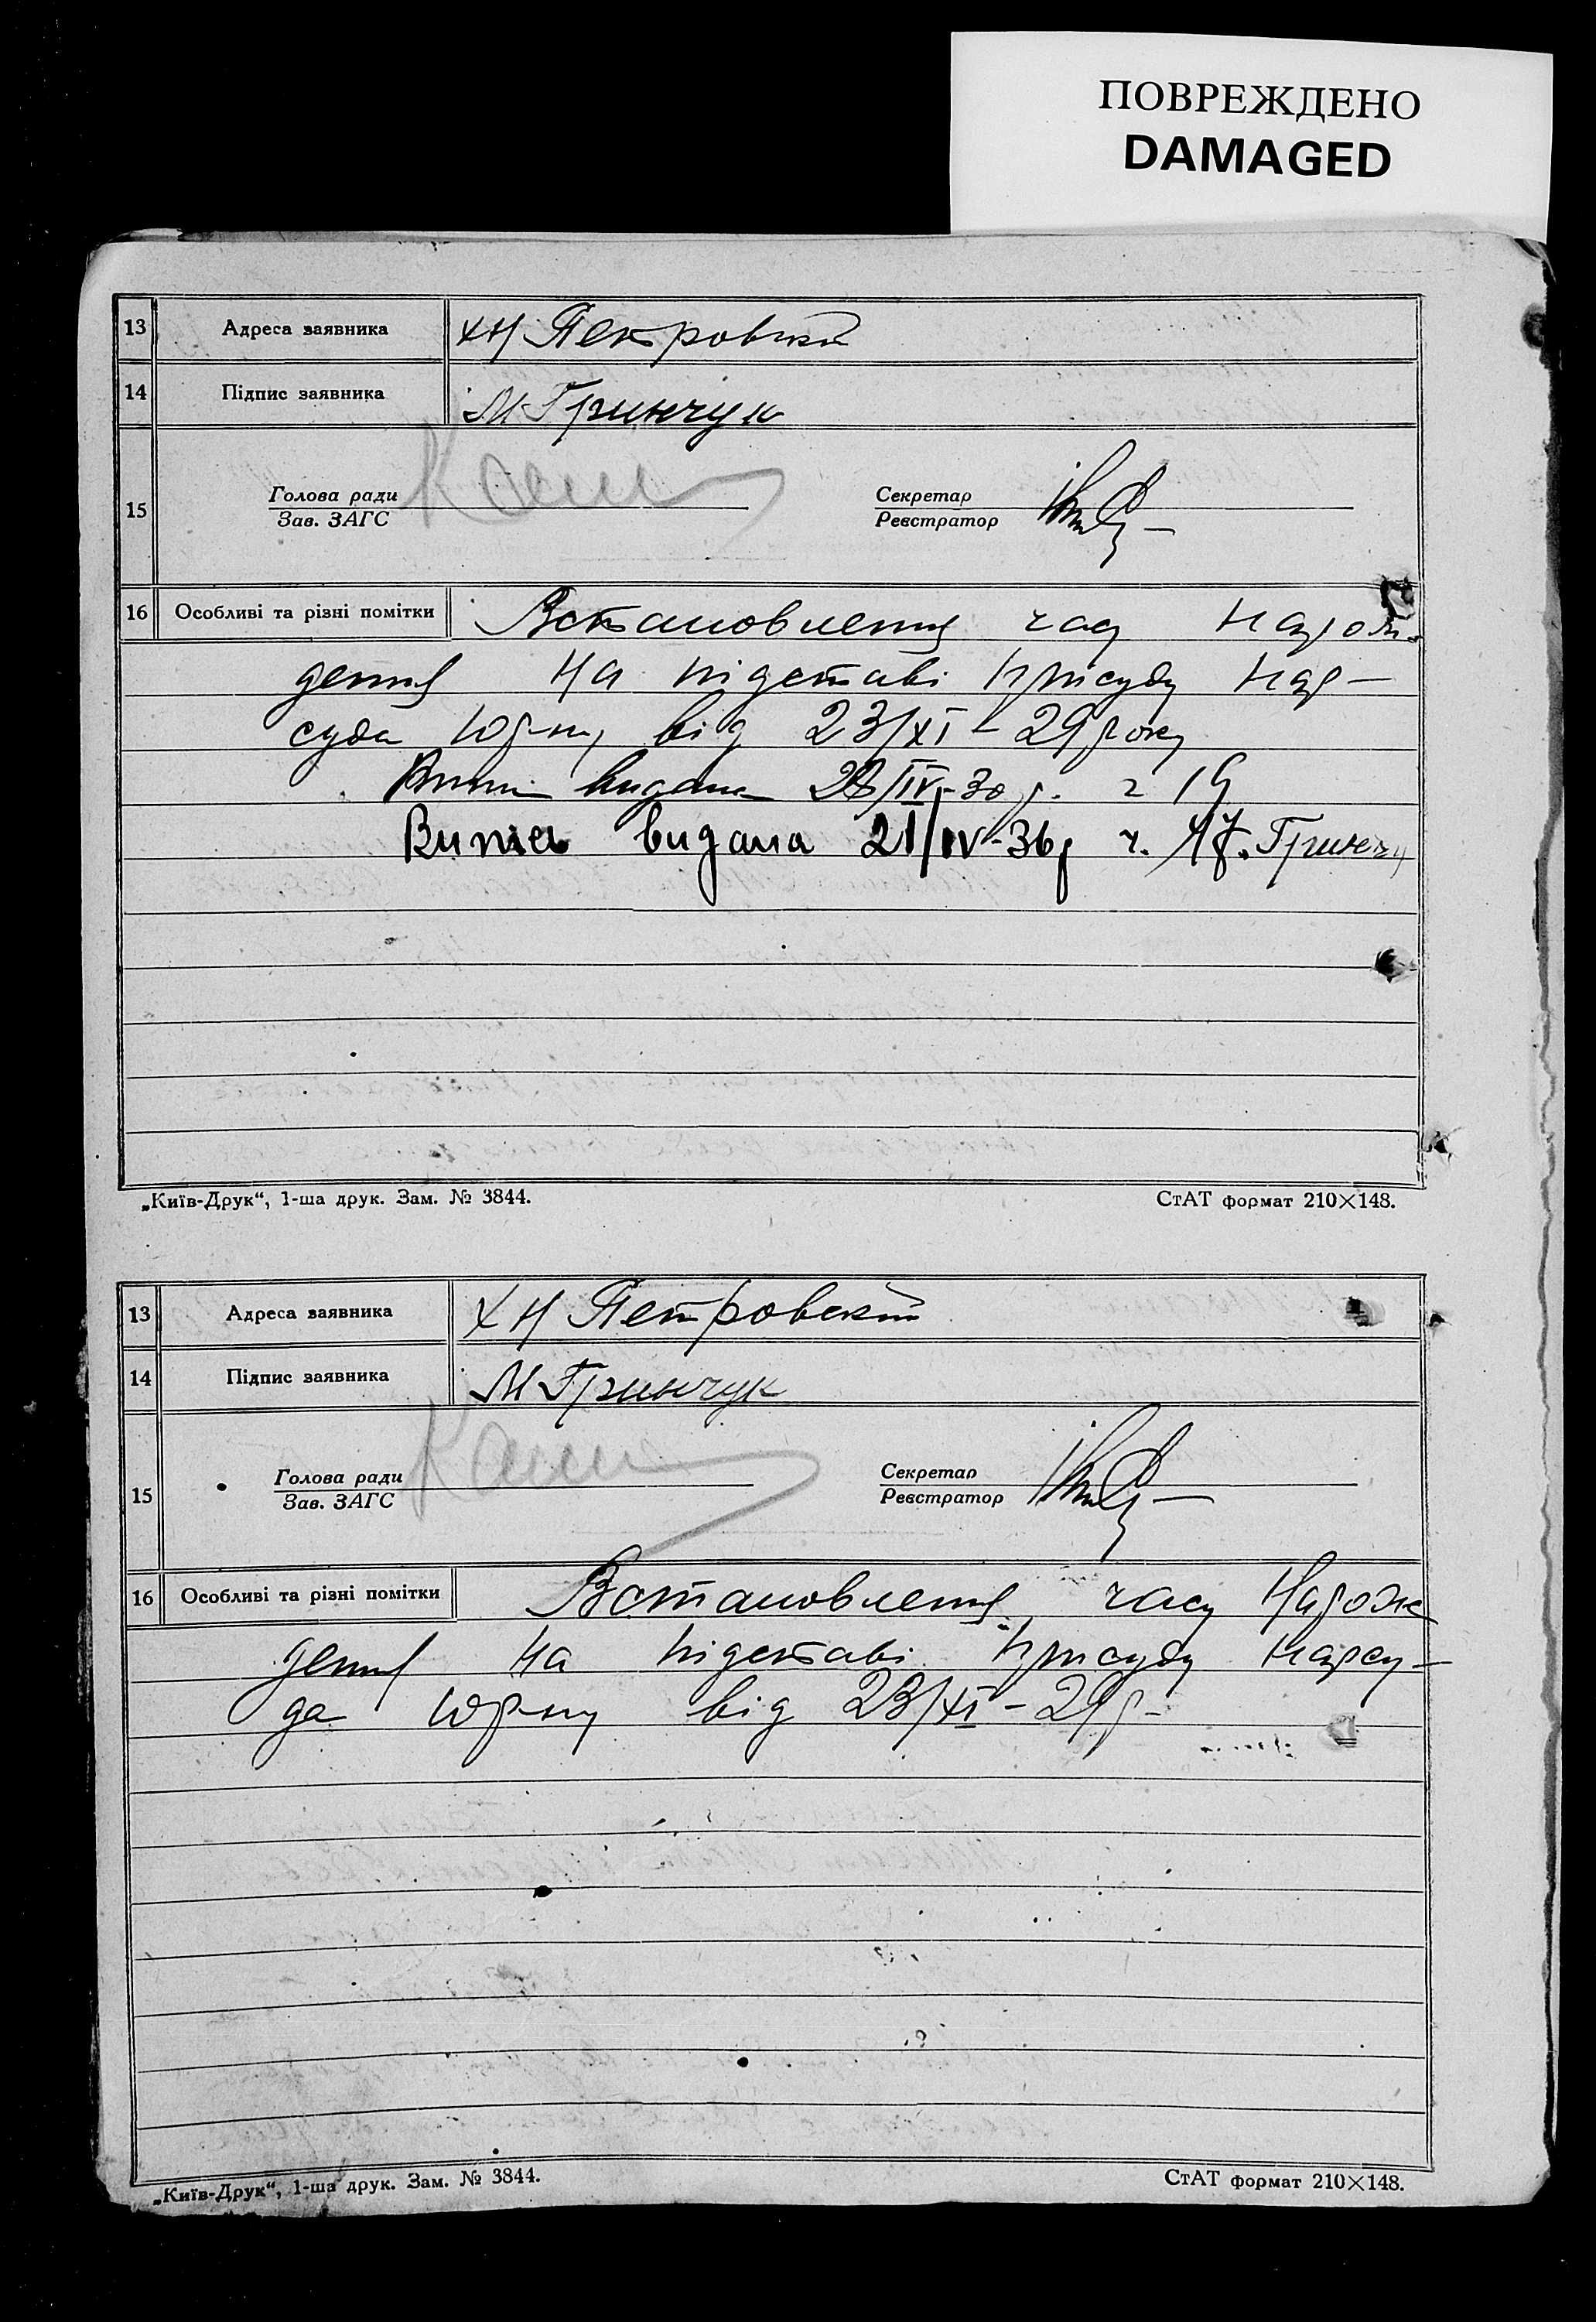 ПОВРЕЖДЕНО
DAMAGED
13 Адреса заявника хн Петровский
14 Підпис заявника М Гринчук
15 Голова ради Секретар
Зав. ЗАГС Реєстратор
16 Особливі та різні помітки Встановлення часу народж-
дення на підставі присуду нар-
суда юр-ну від 23/XI - 29 року
видана 28/IV-30 р. 19
Витяг видана 21/IV-36р ч. 17. Гринчу
„Київ-Друк“, 1-ша друк. Зам. № 3844. СтАТ формат 210×148.
13 Адреса заявника хн Петровский
14 Підпис заявника М Гринчук
15 Голова ради Секретар
Зав. ЗАГС Реєстратор
16 Особливі та різні помітки Встановлення часу Народж
дення на підставі присуду нарсу-
да юр-ну від 23/XI - 29р-
„Київ-Друк“, 1-ша друк. Зам. № 3844. СтАТ формат 210×148.